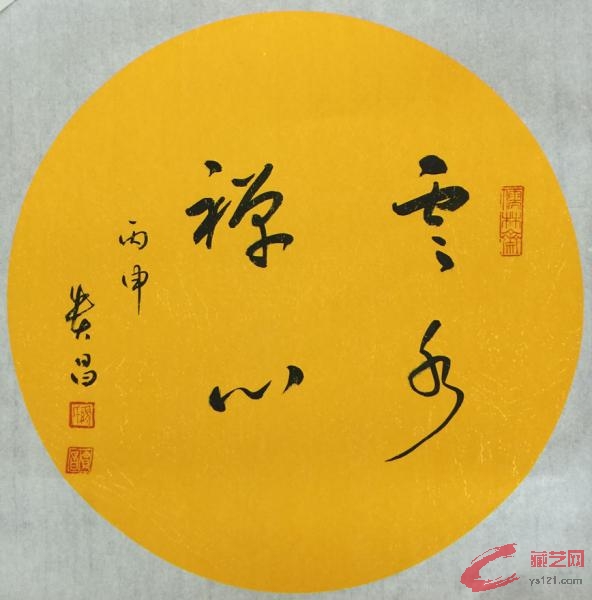 雲水
禅心
丙申
贵昌
藏艺网
ys121.com